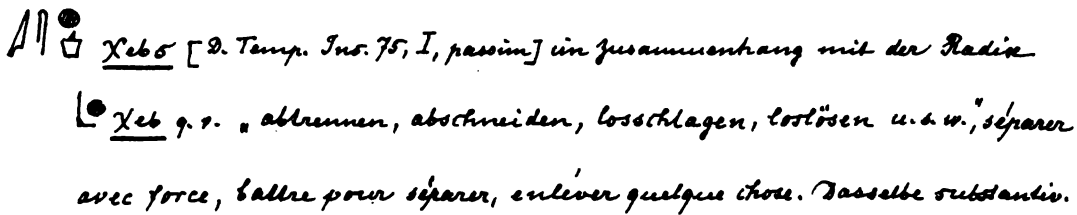 χebs [D. Temp. Ins. 75, I, passim] im Zusammenhang mit der Radix
χeb q. v. „abtrennen, abschneiden, losschlagen, loslösen u. s. w.", séparer
avec force, battre pour séparer, enléver quelque chose. Dasselbe substantiv.